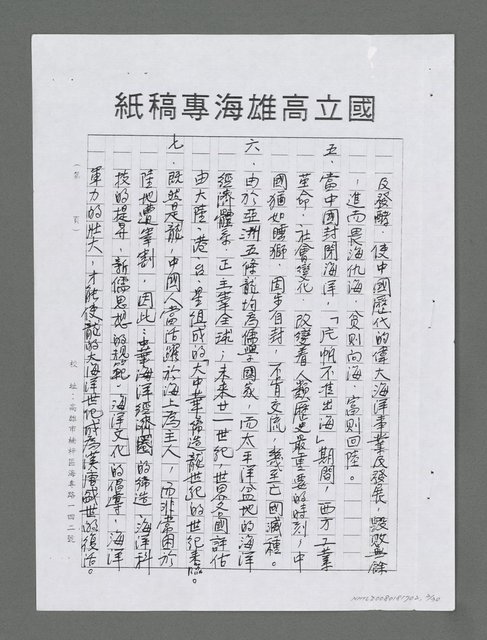 國立高雄海專稿紙
反發酵,使中國歷代的偉大海洋事業及發展,毀敗無餘
,進而畏海仇海,貧則向海,富則回陸。
五.當中國封閉海洋,「片帆不准出海」期間,西方工業
革命,社會變化,改變着人類歷史最重要的時刻,中
國猶如睡獅,固步自封,不肯交流,幾至亡國滅種。
六.由於亞洲五條龍均為儒學國家,而太平洋盆地的海洋
經濟體系,正主宰全球;未來廿一世紀,世界各國評估
由大陸、港、台、星組成的「大中華締造龍世紀的世紀
七.既然是龍,中國人當活躍於海上為主人,而非常困於
陸地遭宰割,因此:中華海洋經濟圈的締造,海洋科
技的提昇,新儒思想的規範,海洋文化的倡導,海洋
軍力的壯大,才能使龍的大海洋世紀成為漢唐盛世的復活。
(第 頁)
校址:高雄市楠梓區海專路一四二號
NMTL20080181702, 3/30